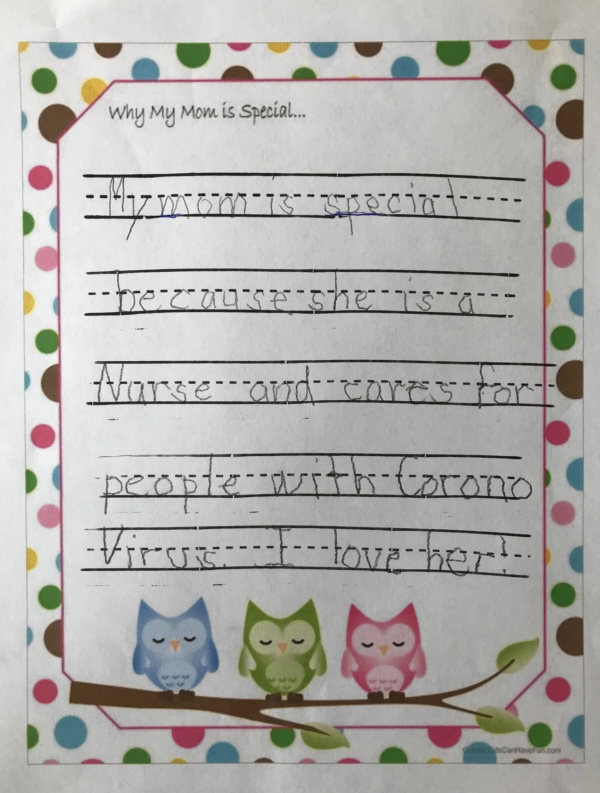 Why My Mom is Special...
My mom is special
because she is a
Nurse and cares for
people with Corono
Virus. I love her!
©www.KidsCanHaveFun.com